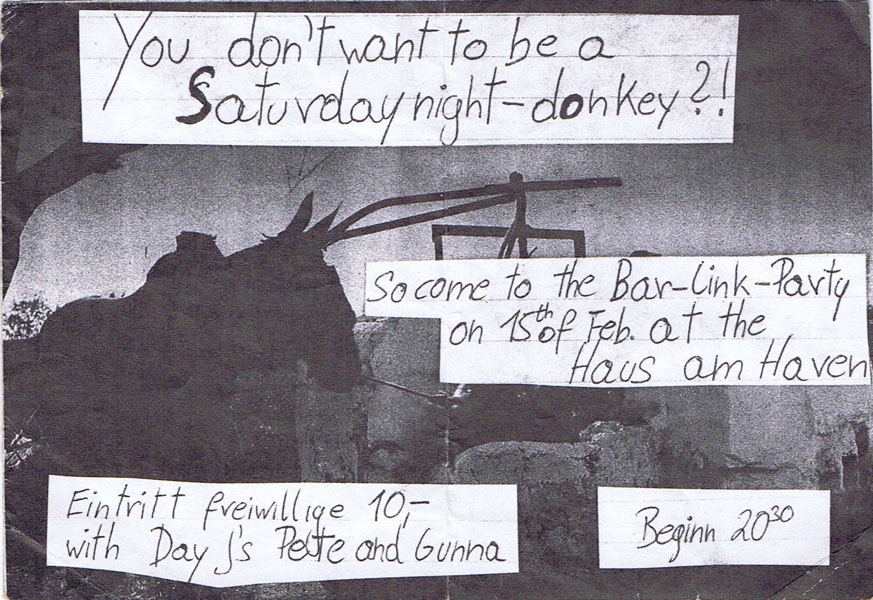 You don't want to be a
Saturday night-donkey?!
So come to the Bar-Link-Party
on 15th of Feb. at the
Haus am Haven
Eintritt freiwillige 10,-
with Day J's Pette and Gunna
Beginn 20³⁰